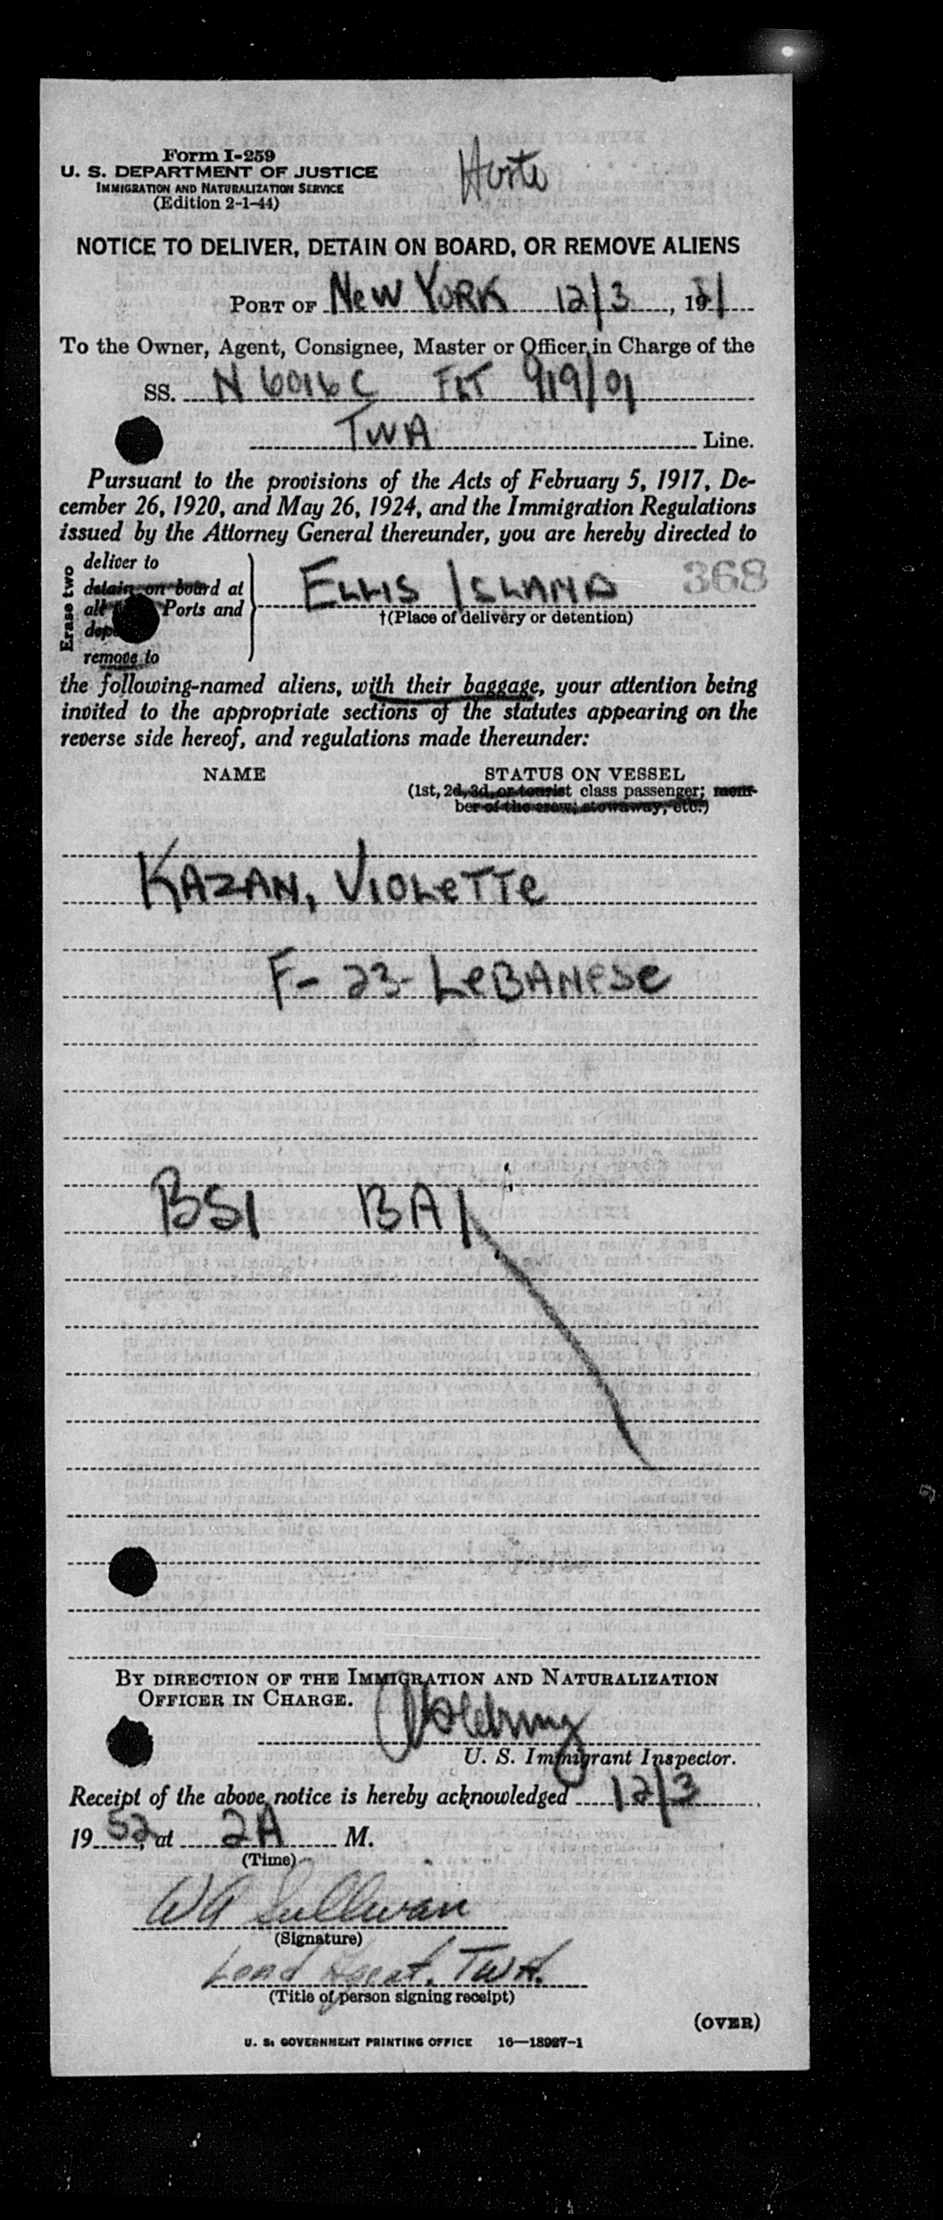 Form I-259
U. S. DEPARTMENT OF JUSTICE
IMMIGRATION AND NATURALIZATION SERVICE
(Edition 2-1-44)
NOTICE TO DELIVER, DETAIN ON BOARD, OR REMOVE ALIENS
PORT OF New YORK 12/3, 19
To the Owner, Agent, Consignee, Master or Officer in Charge of the
SS. N 6016 C FLT 919/01
TWA Line.
Pursuant to the provisions of the Acts of February 5, 1917, De-
cember 26, 1920, and May 26, 1924, and the Immigration Regulations
issued by the Attorney General thereunder, you are hereby directed to
Erase two
deliver to
detain on board at
all Ports and
remove to
ELLIS ISLAND 368
†(Place of delivery or detention)
the following-named aliens, with their baggage, your attention being
invited to the appropriate sections of the statutes appearing on the
reverse side hereof, and regulations made thereunder:
NAME STATUS ON VESSEL
(1st, 2d, 3d, or tourist class passenger; mem-
ber of the crew; stowaway, etc.)
KAZAN, VIOLeTTe
F- 23- LeBANeSe
BSI BAI
BY DIRECTION OF THE IMMIGRATION AND NATURALIZATION
OFFICER IN CHARGE.
U. S. Immigrant Inspector.
Receipt of the above notice is hereby acknowledged 12/3
1952, at 2A M.
(Time)
WA Sullivan
(Signature)
Lead Agent. TWA.
(Title of person signing receipt)
(OVER)
U. S. GOVERNMENT PRINTING OFFICE 16—18987-1